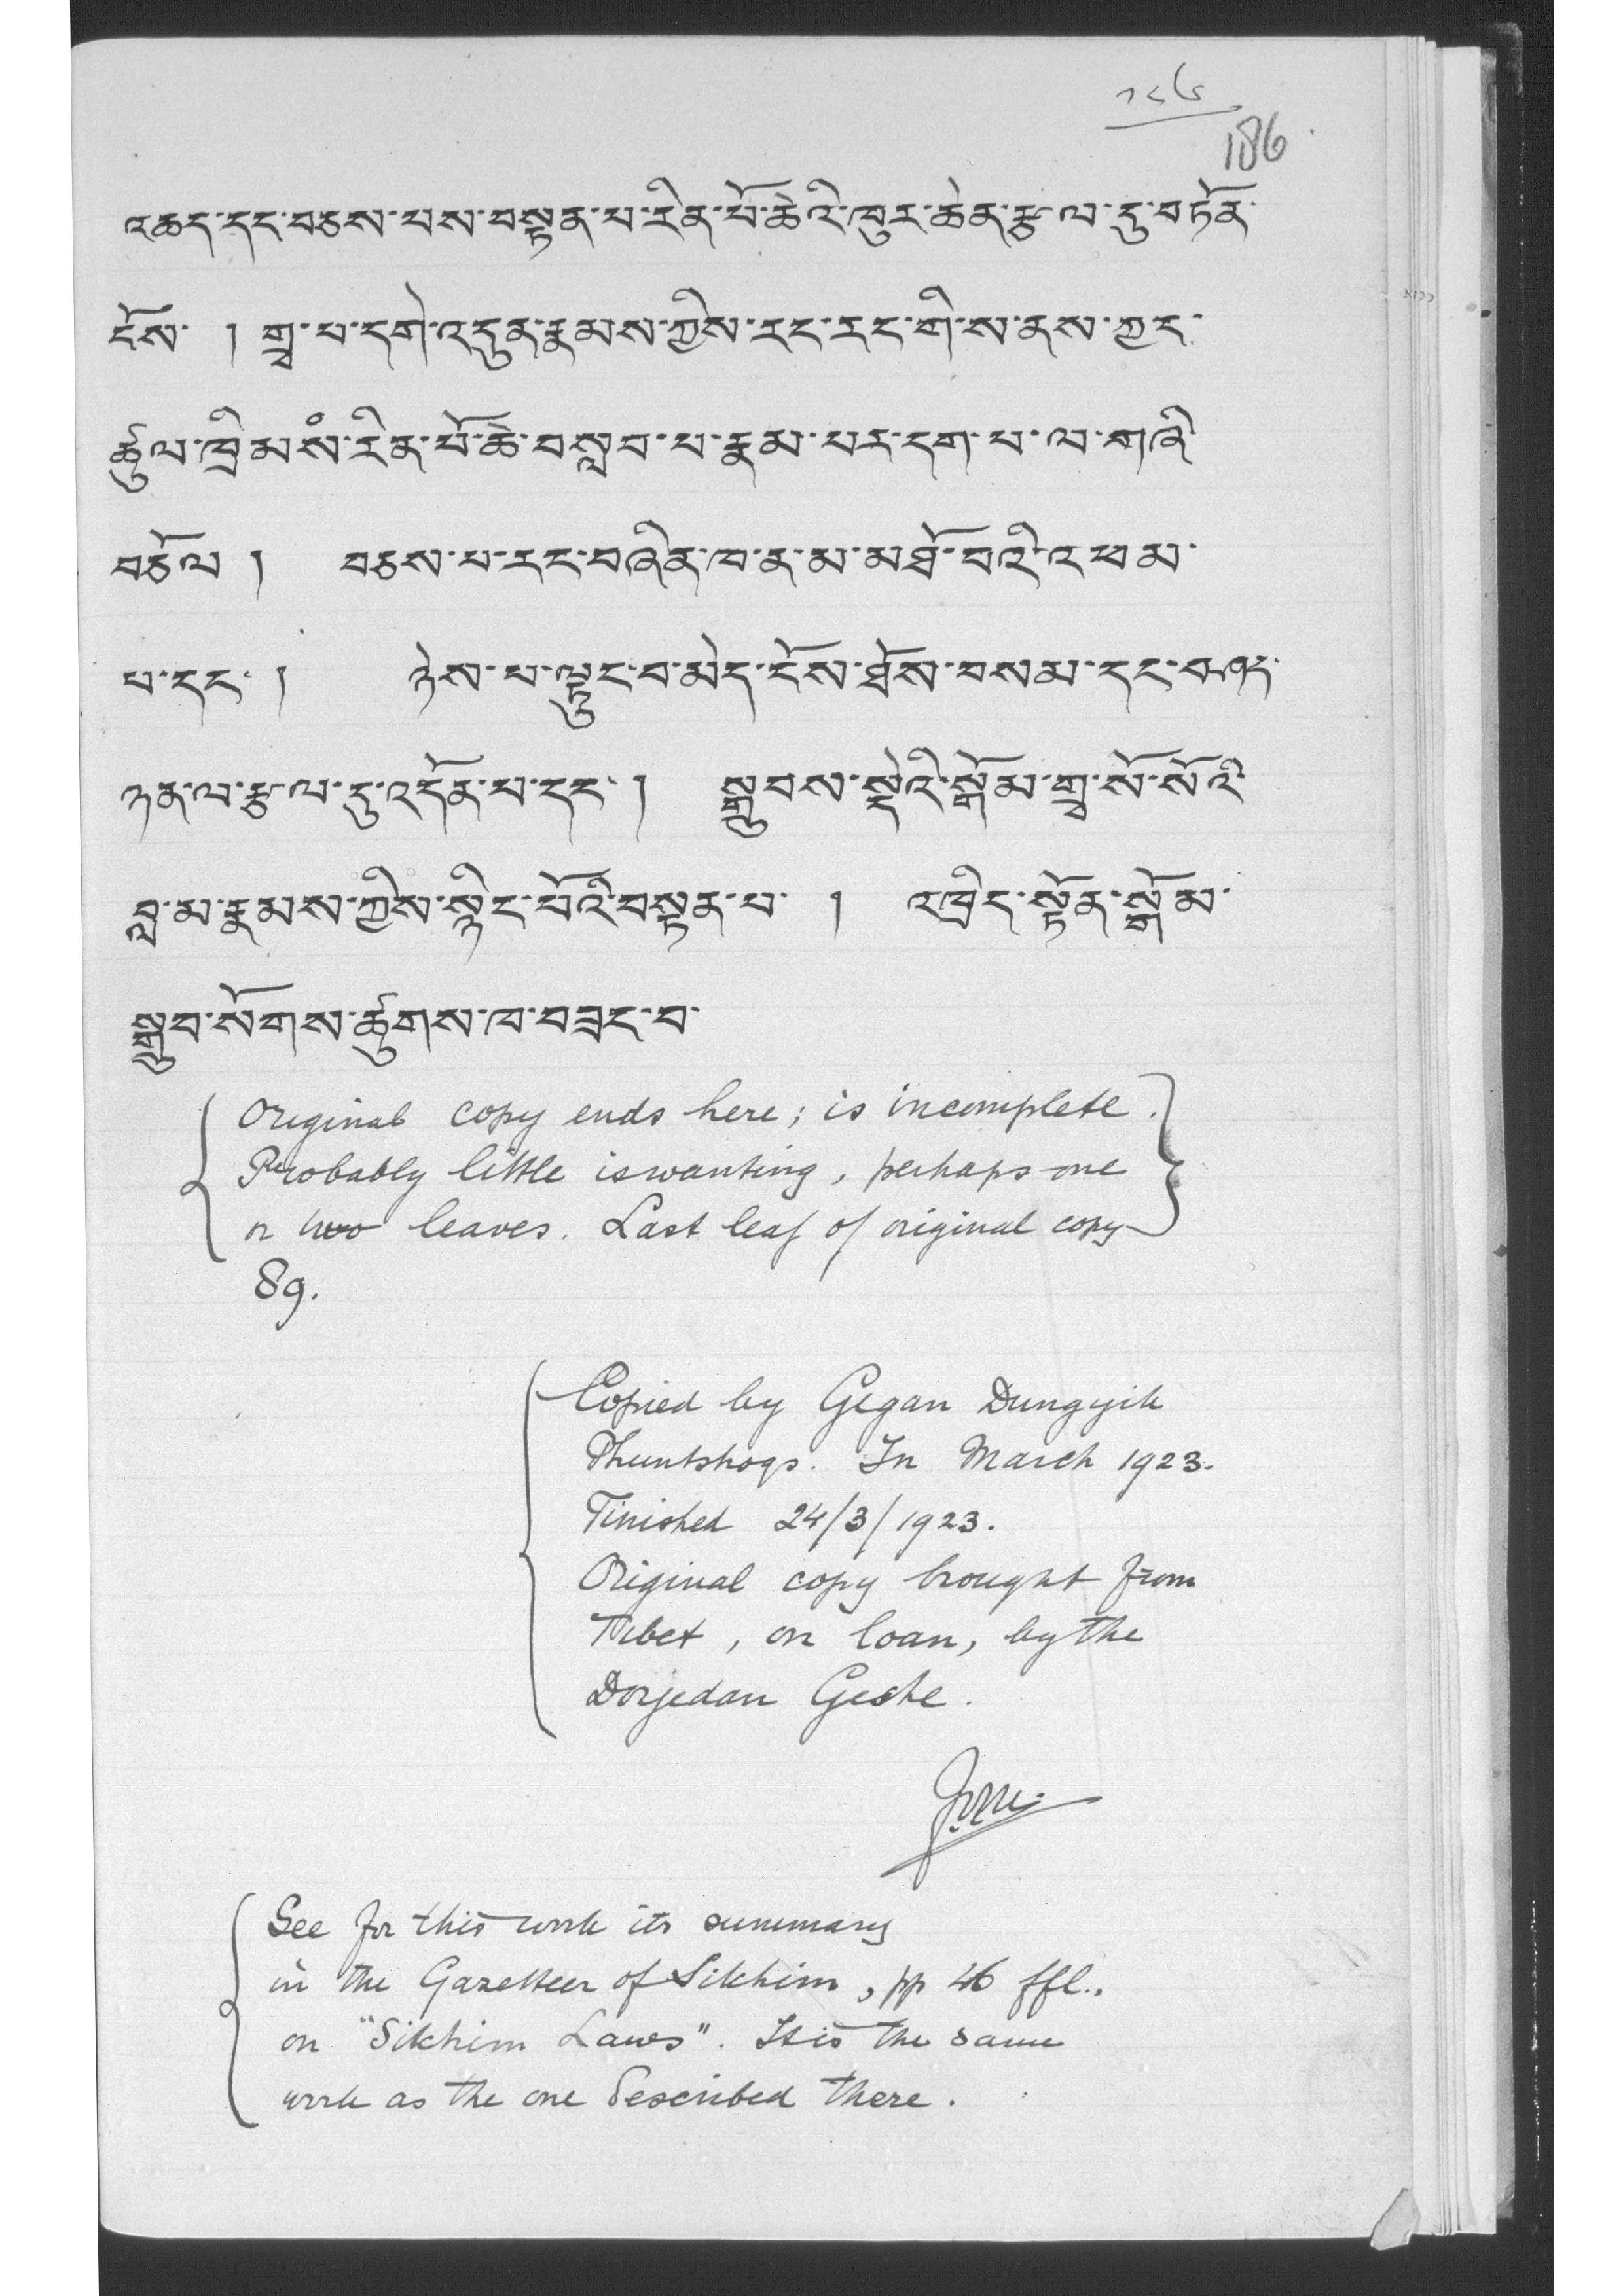 ༡༨༦
186
འཆད་དང་བཅས་པས་བསྟན་པ་རིན་པོ་ཆེའི་ཁུར་ཆེན་རྩལ་དུ་བཏོན་
ངོས་ ། གྲྭ་པ་དགེ་འདུན་རྣམས་ཀྱིས་རང་རང་གི་ས་ནས་ཀྱང་
ཚུལ་ཁྲིམསཾ་རིན་པོ་ཆེ་བསླབ་པ་རྣམ་པར་དག་པ་ལ་གཞི
བཅོལ ། བཅས་པ་རང་བཞིན་ཁ་ན་མ་མཐོ་བའི་འཕམ་
པ་དང་ ། ཉེས་པ་ལྟུང་བ་མེད་ངོས་ཐོས་བསམ་དང་
ཉན་ལ་རྩལ་དུ་འདོན་པ་དང་ ། སྒྲུབས་སྡེའི་སྒོམ་གྲྭ་སོ་སོའི
བླ་མ་རྣམས་ཀྱིས་སྙིང་པོའི་བསྟན་པ་ ། འཁྲིད་སྟོན་སྒོམ་
སྒྲུབ་སོགས་ཚུགས་ཁ་བཟང་བ་
Original copy ends here; is incomplete.
Probably little is wanting, perhaps one
or two leaves. Last leaf of original copy
89.
Copied by Gegan Dungyik
Phuntshogs. In March 1923.
Finished 24/3/1923.
Original copy brought from
Tibet, on loan, by the
Dorjedan Geshe.
See for this work its summary
in the Gazetteer of Sikhim, pp 46 ffl.,
on "Sikhim Laws". It is the same
work as the one described there.